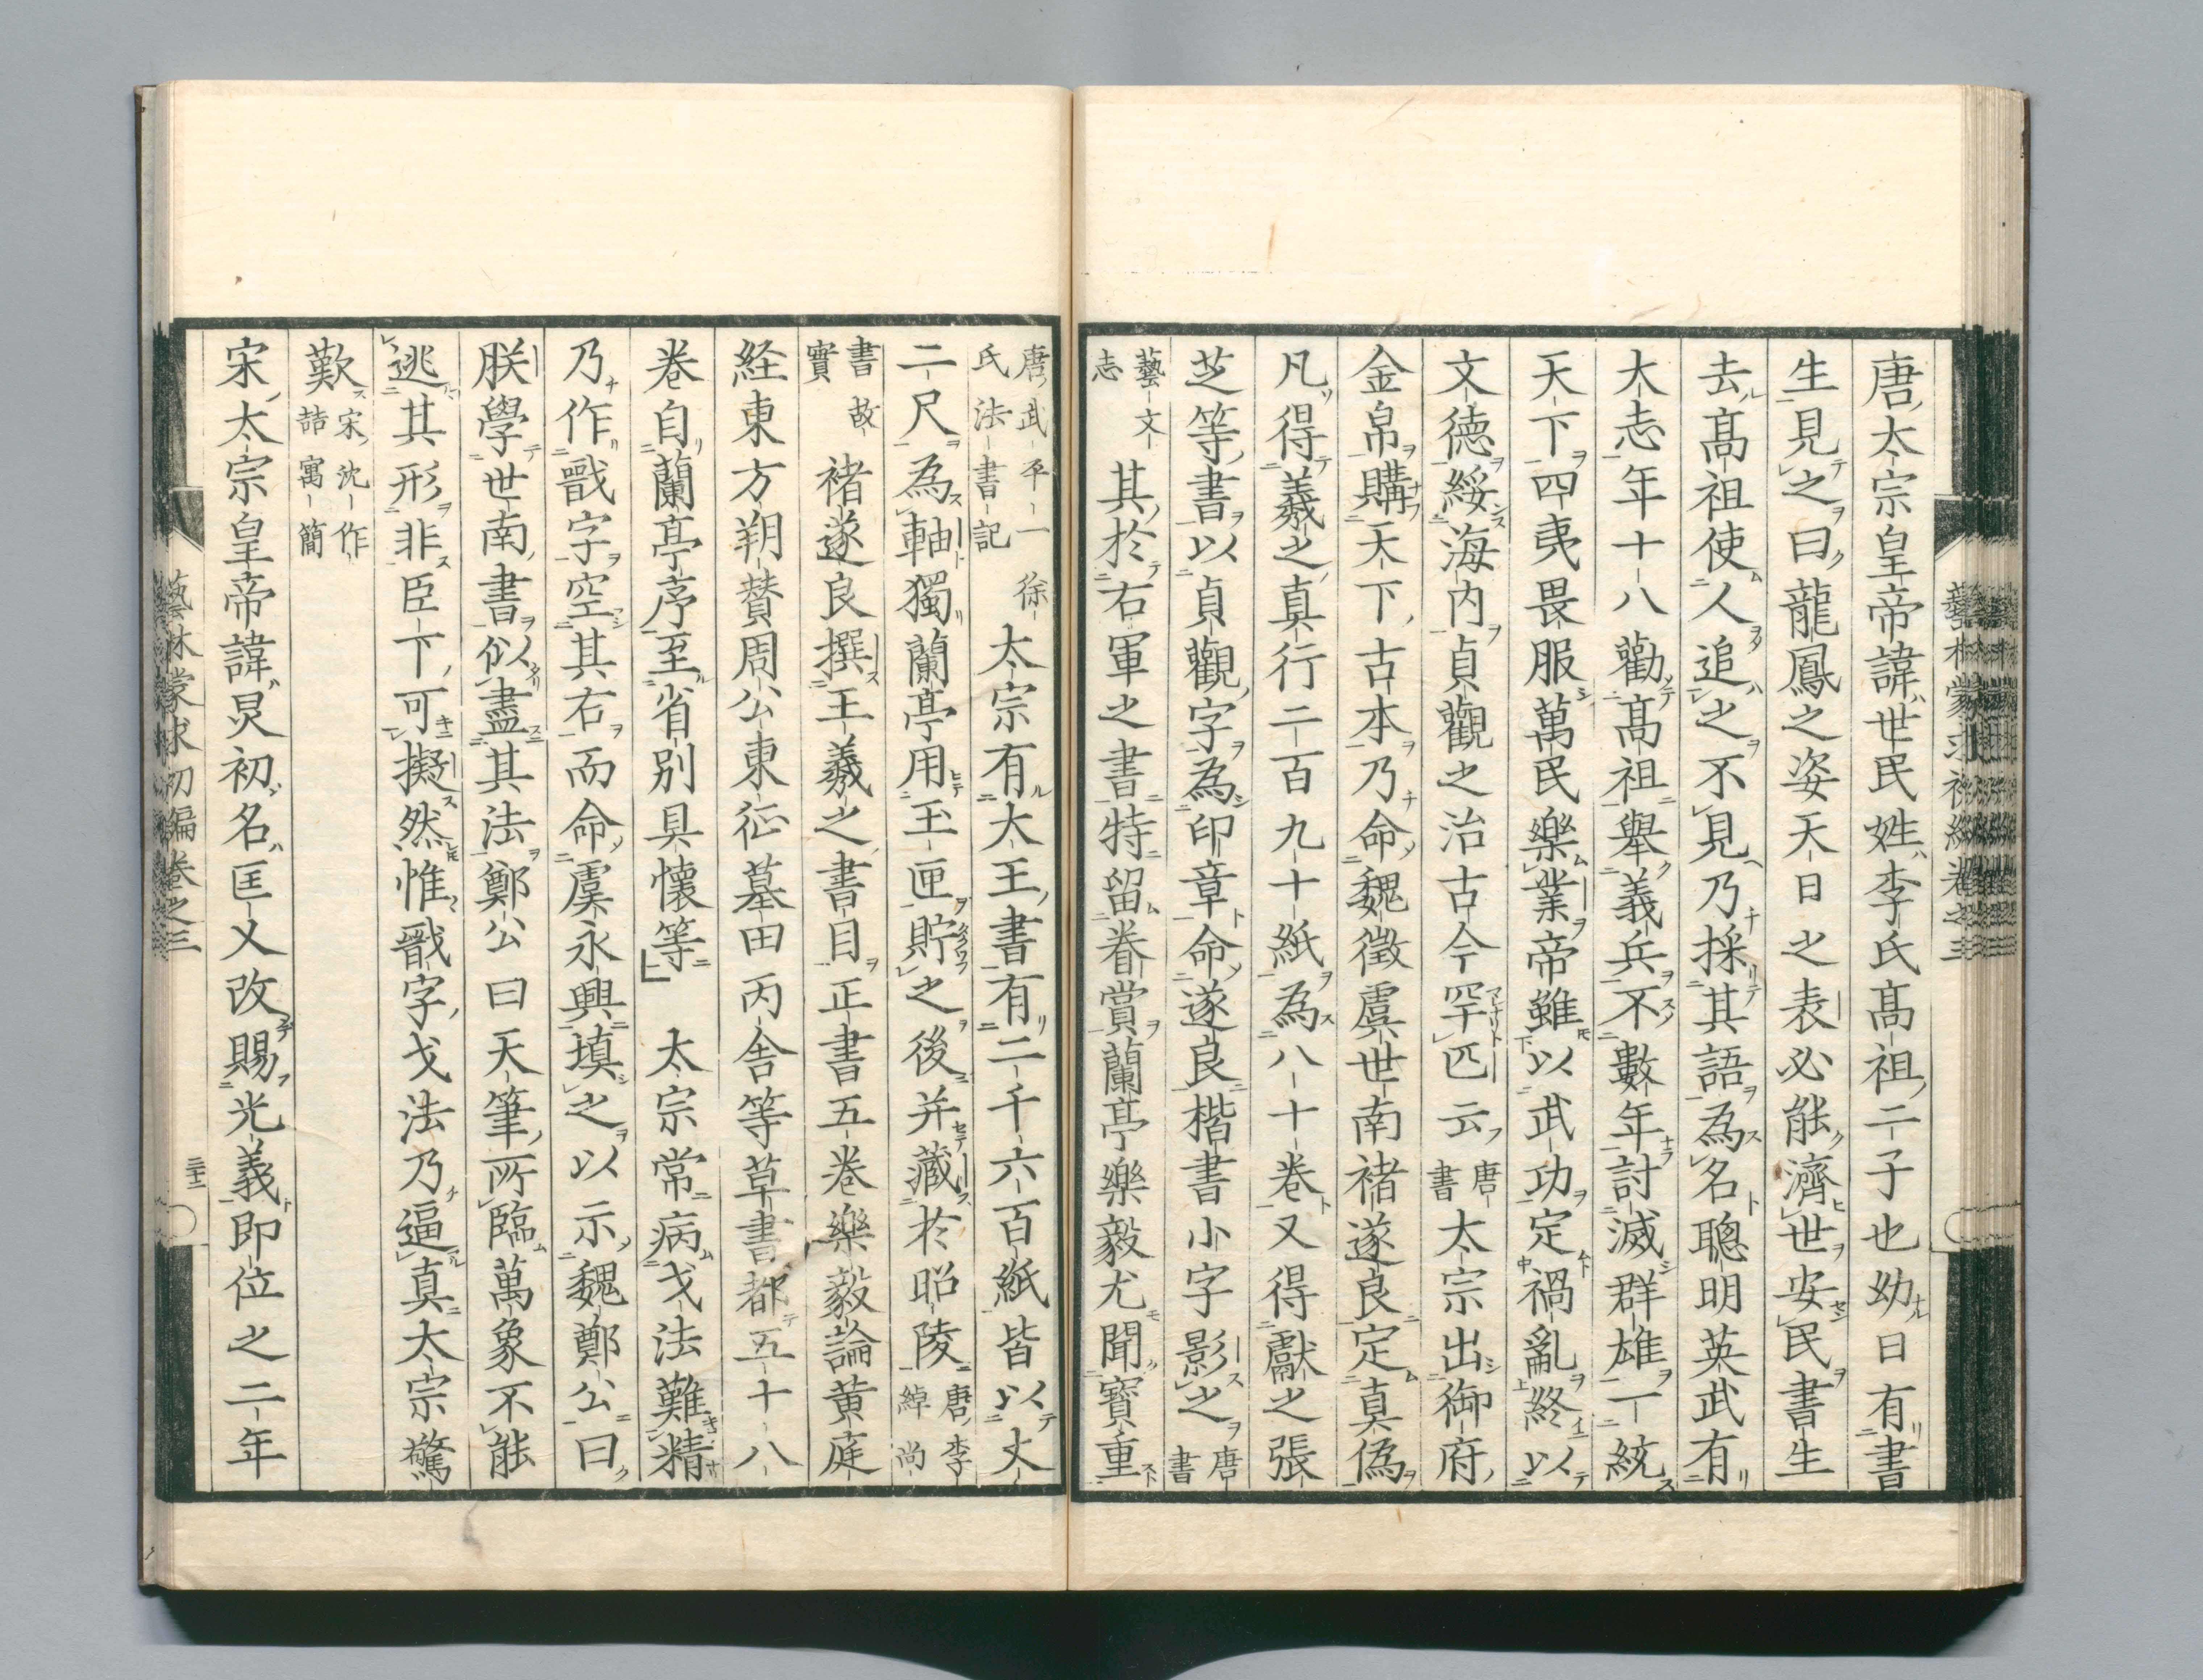 唐太宗皇帝諱世民姓李氏髙祖二子也幼日有書
生見之曰龍鳳之姿天日之表必能濟世安民書生
去髙祖使人追之不見乃採其語為名聰明英武有
大志年十八勸髙祖舉義兵不數年討滅群雄一統
天下四夷畏服萬民樂業帝雖以武功定禍亂終以
文德綏海内貞觀之治古今罕匹云 唐書 太宗出御府
金帛購天下古本乃命魏徵虞世南褚遂良定真偽
凡得羲之真行二百九十紙為八十卷又得獻之張
芝等書以貞觀字為印章命遂良楷書小字影之 唐書
藝文志 其於右軍之書特留眷賞蘭亭樂毅尤聞寶重
唐武平一徐氏法書記 太宗有大王書有二千六百紙皆以丈
二尺為軸獨蘭亭用玉匣貯之後并藏於昭陵 唐李綽尚
書故實 褚遂良撰王羲之書目正書五卷樂毅論黄庭
経東方朔賛周公東征墓田丙舎等草書都五十八
卷自蘭亭序至省別具懷等 太宗常病戈法難精
乃作戩字空其右而命虞永興填之以示魏鄭公曰
朕學世南書似盡其法鄭公曰天筆所臨萬象不能
逃其形非臣下可擬然惟戩字戈法乃逼真太宗驚
歎 宋沈作喆寓簡
宋太宗皇帝諱炅初名匡乂改賜光義即位之二年
藝林蒙求初編卷之三